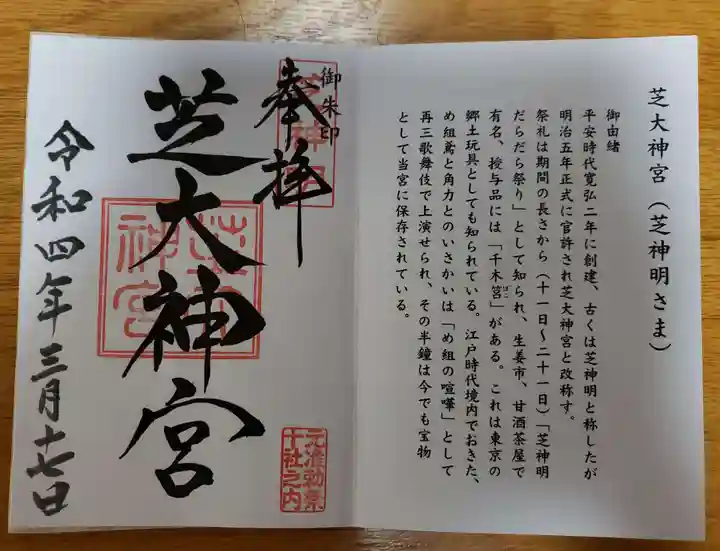 芝大神宮（芝神明さま）
御由緒
平安時代寛弘二年に創建、古くは芝神明と称したが
明治五年正式に官許され芝大神宮と改称す。
祭礼は期間の長さから（十一日～二十一日）「芝神明
だらだら祭り」として知られ、生姜市、甘酒茶屋で
有名、授与品には「千木筥」がある。これは東京の
ばこ
郷土玩具としても知られている。江戸時代境内でおきた、
め組鳶と角力とのいさかいは「め組の喧嘩」として
再三歌舞伎で上演せられ、その半鐘は今でも宝物
として当宮に保存されている。
御朱印
奉拝
芝神明
芝大神宮
芝大神宮
元准勅祭
十社之内
令和四年三月十七日